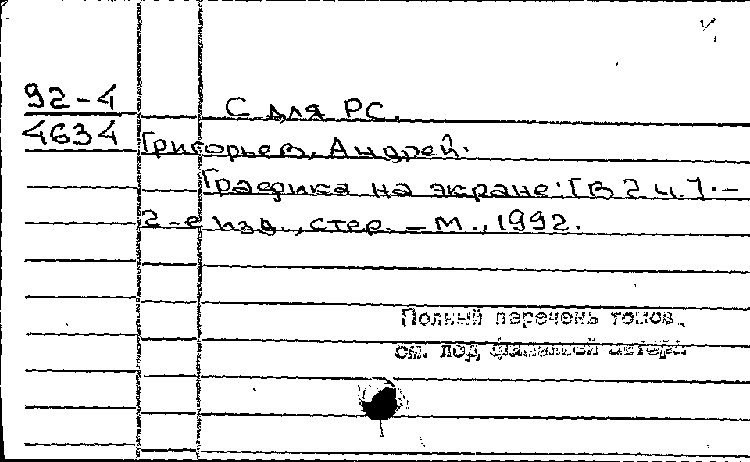 92-4
4634
С для PC.
Григорьев, Андрей.
Графика на экране: [В 2 ч.]. –
2-е изд., стер. – М., 1992.
Полный перечень томов
см. под фамилией автора